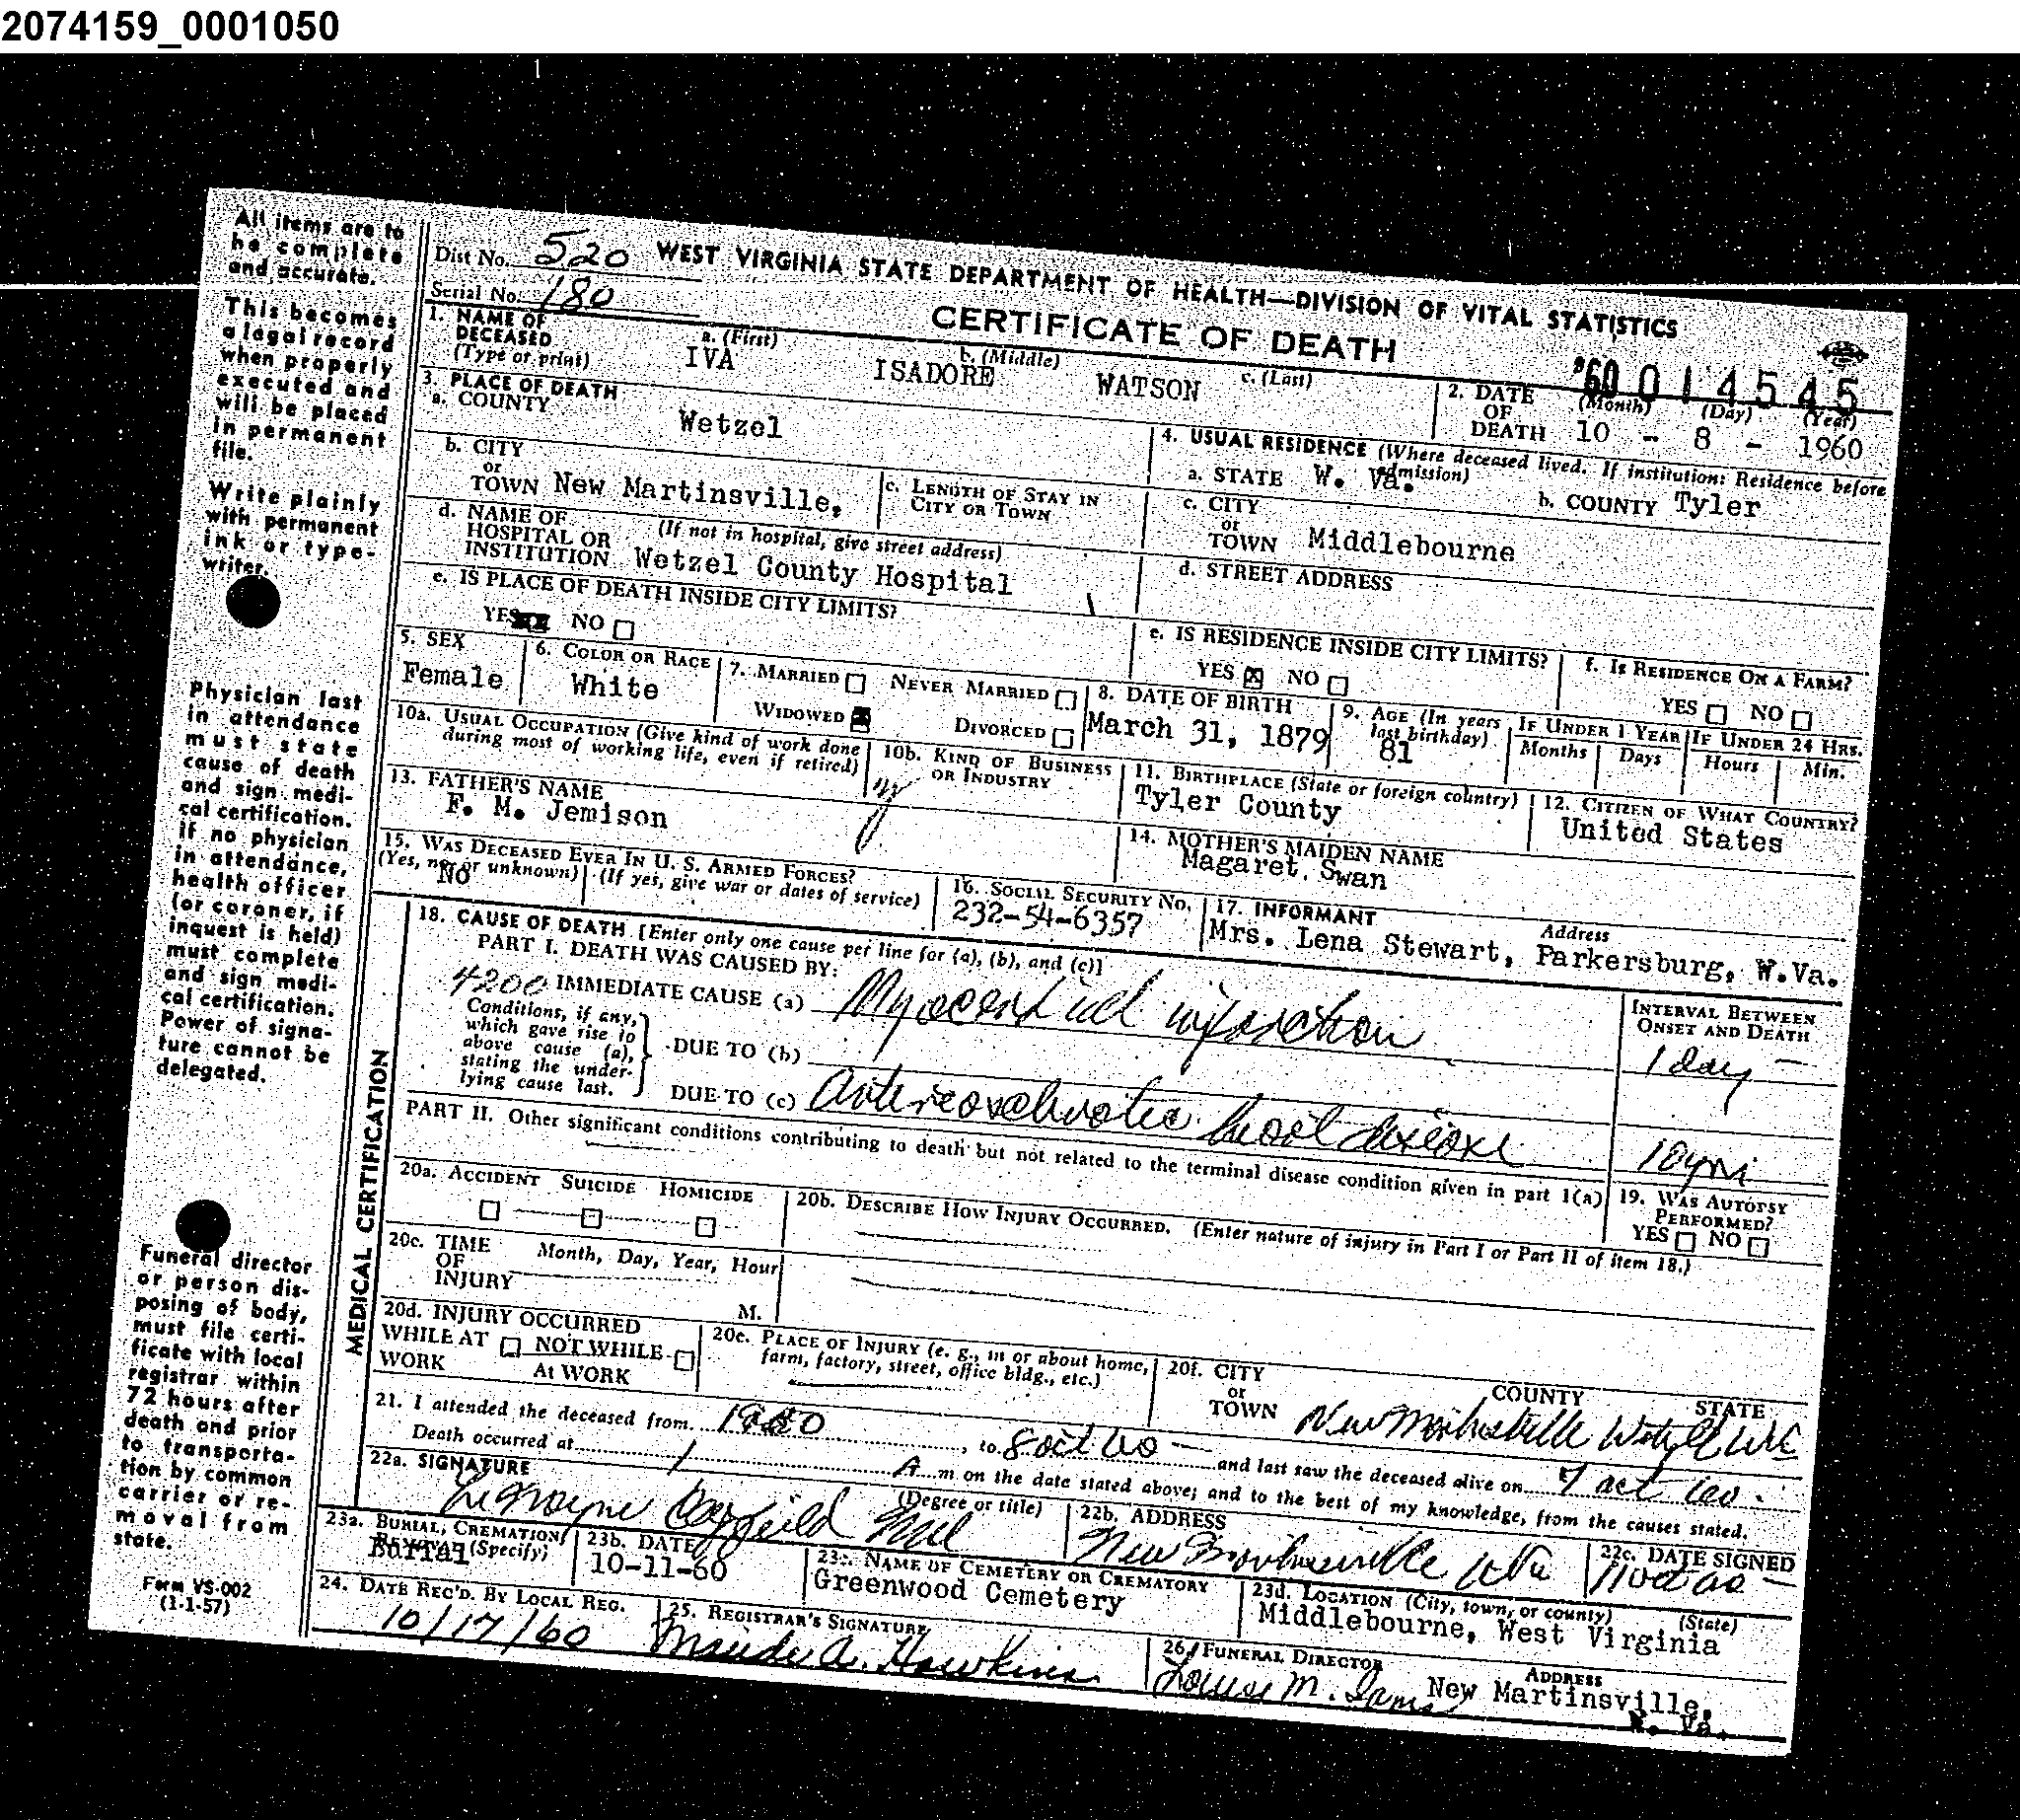 2074159_0001050
All items are to
be complete
and accurate.
This becomes
a legal record
when properly
executed and
will be placed
in permanent
file.
Write plainly
with permanent
ink or type-
writer.
Physician last
in attendance
must state
cause of death
and sign medi-
cal certification.
If no physician
in attendance,
health officer
(or coroner, if
inquest is held)
must complete
and sign medi-
cal certification.
Power of signa-
ture cannot be
delegated.
Funeral director
or person dis-
posing of body,
must file certi-
ficate with local
registrar within
72 hours after
death and prior
to transporta-
tion by common
carrier or re-
moval from
state.
Form VS-002
(1-1-57)
Dist No. 520 WEST VIRGINIA STATE DEPARTMENT OF HEALTH—DIVISION OF VITAL STATISTICS
Serial No. 180
CERTIFICATE OF DEATH
'60 014545
1. NAME OF DECEASED (Type or print)
a. (First) b. (Middle) c. (Last)
IVA ISADORE WATSON
2. DATE OF DEATH (Month) (Day) (Year)
10 - 8 - 1960
3. PLACE OF DEATH
a. COUNTY Wetzel
b. CITY or TOWN New Martinsville,
c. LENGTH OF STAY IN CITY OR TOWN
d. NAME OF HOSPITAL OR INSTITUTION (If not in hospital, give street address)
Wetzel County Hospital
e. IS PLACE OF DEATH INSIDE CITY LIMITS?
YES NO
4. USUAL RESIDENCE (Where deceased lived. If institution: Residence before admission)
a. STATE W. Va. b. COUNTY Tyler
c. CITY or TOWN Middlebourne
d. STREET ADDRESS
e. IS RESIDENCE INSIDE CITY LIMITS?
YES X NO
f. IS RESIDENCE ON A FARM?
YES NO
5. SEX
Female
6. COLOR OR RACE
White
7. MARRIED NEVER MARRIED
WIDOWED DIVORCED
8. DATE OF BIRTH
March 31, 1879
9. AGE (In years last birthday)
81
IF UNDER 1 YEAR
Months Days
IF UNDER 24 HRS.
Hours Min.
10a. USUAL OCCUPATION (Give kind of work done during most of working life, even if retired)
10b. KIND OF BUSINESS OR INDUSTRY
11. BIRTHPLACE (State or foreign country)
Tyler County
12. CITIZEN OF WHAT COUNTRY?
United States
13. FATHER'S NAME
F. M. Jemison
14. MOTHER'S MAIDEN NAME
Magaret. Swan
15. WAS DECEASED EVER IN U. S. ARMED FORCES?
(Yes, no, or unknown) (If yes, give war or dates of service)
NO
16. SOCIAL SECURITY NO.
232-54-6357
17. INFORMANT Address
Mrs. Lena Stewart, Parkersburg, W.Va.
MEDICAL CERTIFICATION
18. CAUSE OF DEATH [Enter only one cause per line for (a), (b), and (c)]
PART I. DEATH WAS CAUSED BY:
4200 IMMEDIATE CAUSE (a) Myocardial infarction
INTERVAL BETWEEN ONSET AND DEATH
1 day —
Conditions, if any, which gave rise to above cause (a), stating the underlying cause last.
DUE TO (b)
DUE TO (c) Arteriosclerotic heart disease
10 yrs
PART II. Other significant conditions contributing to death but not related to the terminal disease condition given in part 1(a)
19. WAS AUTOPSY PERFORMED?
YES NO
20a. ACCIDENT SUICIDE HOMICIDE
20b. DESCRIBE HOW INJURY OCCURRED. (Enter nature of injury in Part I or Part II of item 18.)
20c. TIME OF INJURY Month, Day, Year, Hour
M.
20d. INJURY OCCURRED
WHILE AT WORK NOT WHILE AT WORK
20e. PLACE OF INJURY (e. g., in or about home, farm, factory, street, office bldg., etc.)
20f. CITY or TOWN COUNTY STATE
New Martinsville Wetzel
21. I attended the deceased from , to 8 oct 60 — and last saw the deceased alive on oct 60.
Death occurred at 1 A m on the date stated above; and to the best of my knowledge, from the causes stated.
22a. SIGNATURE (Degree or title)
22b. ADDRESS
New Martinsville
22c. DATE SIGNED
23a. BURIAL, CREMATION, REMOVAL (Specify)
Burial
23b. DATE
10-11-60
23c. NAME OF CEMETERY OR CREMATORY
Greenwood Cemetery
23d. LOCATION (City, town, or county) (State)
Middlebourne, West Virginia
24. DATE REC'D. BY LOCAL REG.
10/17/60
25. REGISTRAR'S SIGNATURE
Maude A. Hawkins
26. FUNERAL DIRECTOR ADDRESS
Louise M. Iams New Martinsville,
W. Va.